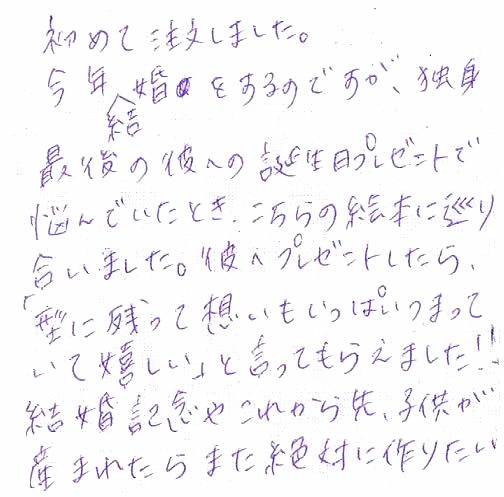 初めて注文しました。
今年結婚をするのですが、独身
最後の彼への誕生日プレゼントで
悩んでいたとき、こちらの絵本に巡り
合いました。彼へプレゼントしたら、
「型に残って想いもいっぱいつまって
いて嬉しい」と言ってもらえました!!
結婚記念やこれから先、子供が
産まれたらまた絶対に作りたい